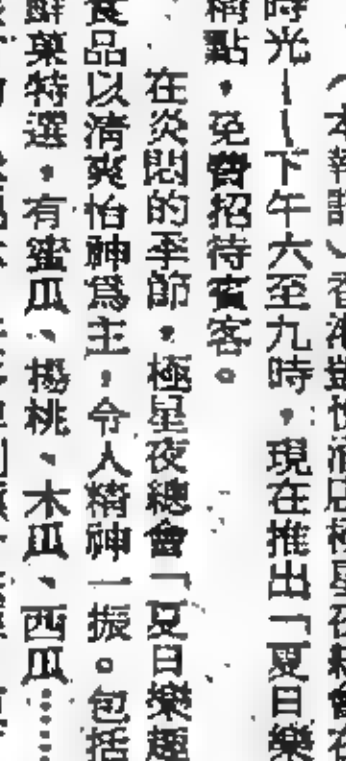 （本報訊）香港凱悅酒店極星夜總會在
時光——下午六至九時，現在推出「夏日樂
稱點，免費招待賓客。
在炎悶的季節，極星夜總會「夏日樂趣
食品以清爽怡神爲主，令人精神一振。包括
鮮菓特選，有蜜瓜、楊桃、木瓜、西瓜……